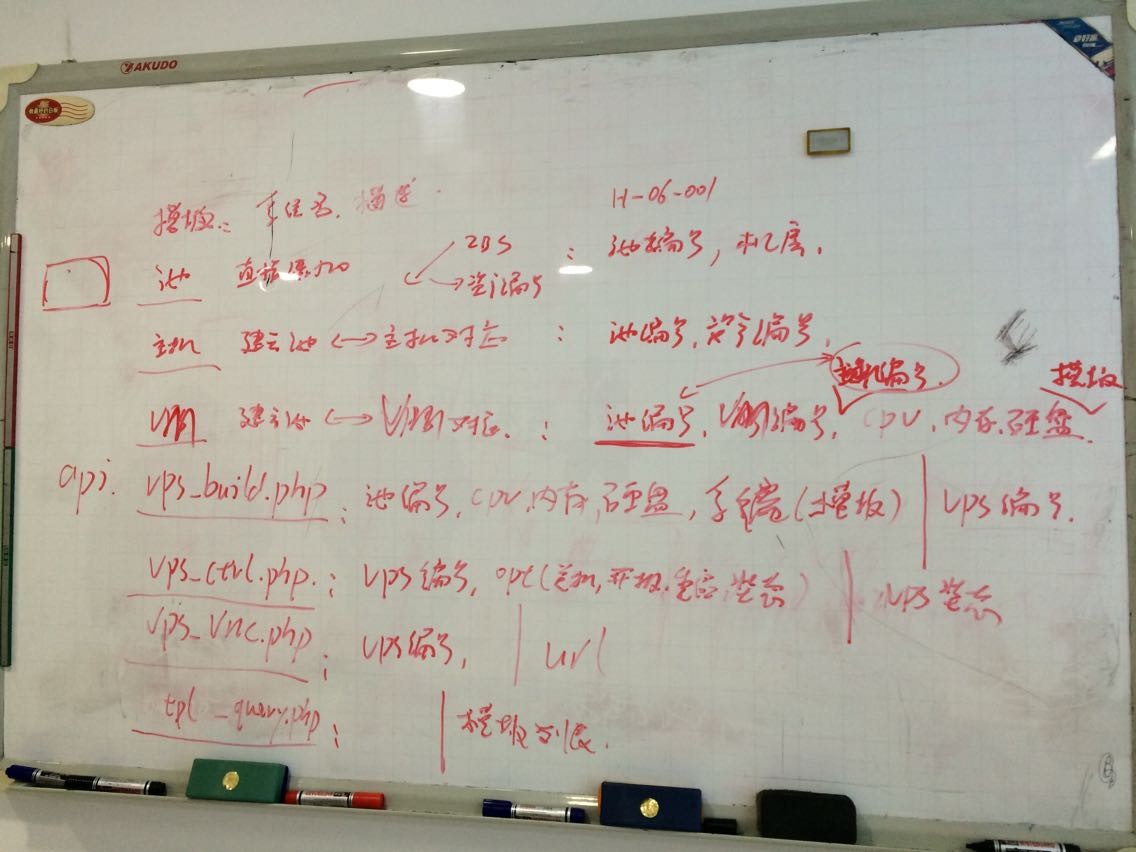 AKUDO
H-06-001
模板:
ZBS
池 : 池编号, 机房.
编号
主机 建立池 ↔ 主机对应 : 池编号, 编号,
主机编号. 模板
VM 建立池 ↔ VM对应. : 池编号, VM编号, CPU, 内存, 硬盘.
api. vps_build.php : 池编号, CPU, 内存, 硬盘, (模板) | VPS编号.
vps_ctrl.php. : VPS编号, opt(关机, 开机, 重启, 状态) | VPS状态
vps_vnc.php : VPS编号, | url
tpl_query.php : | 模板列表.